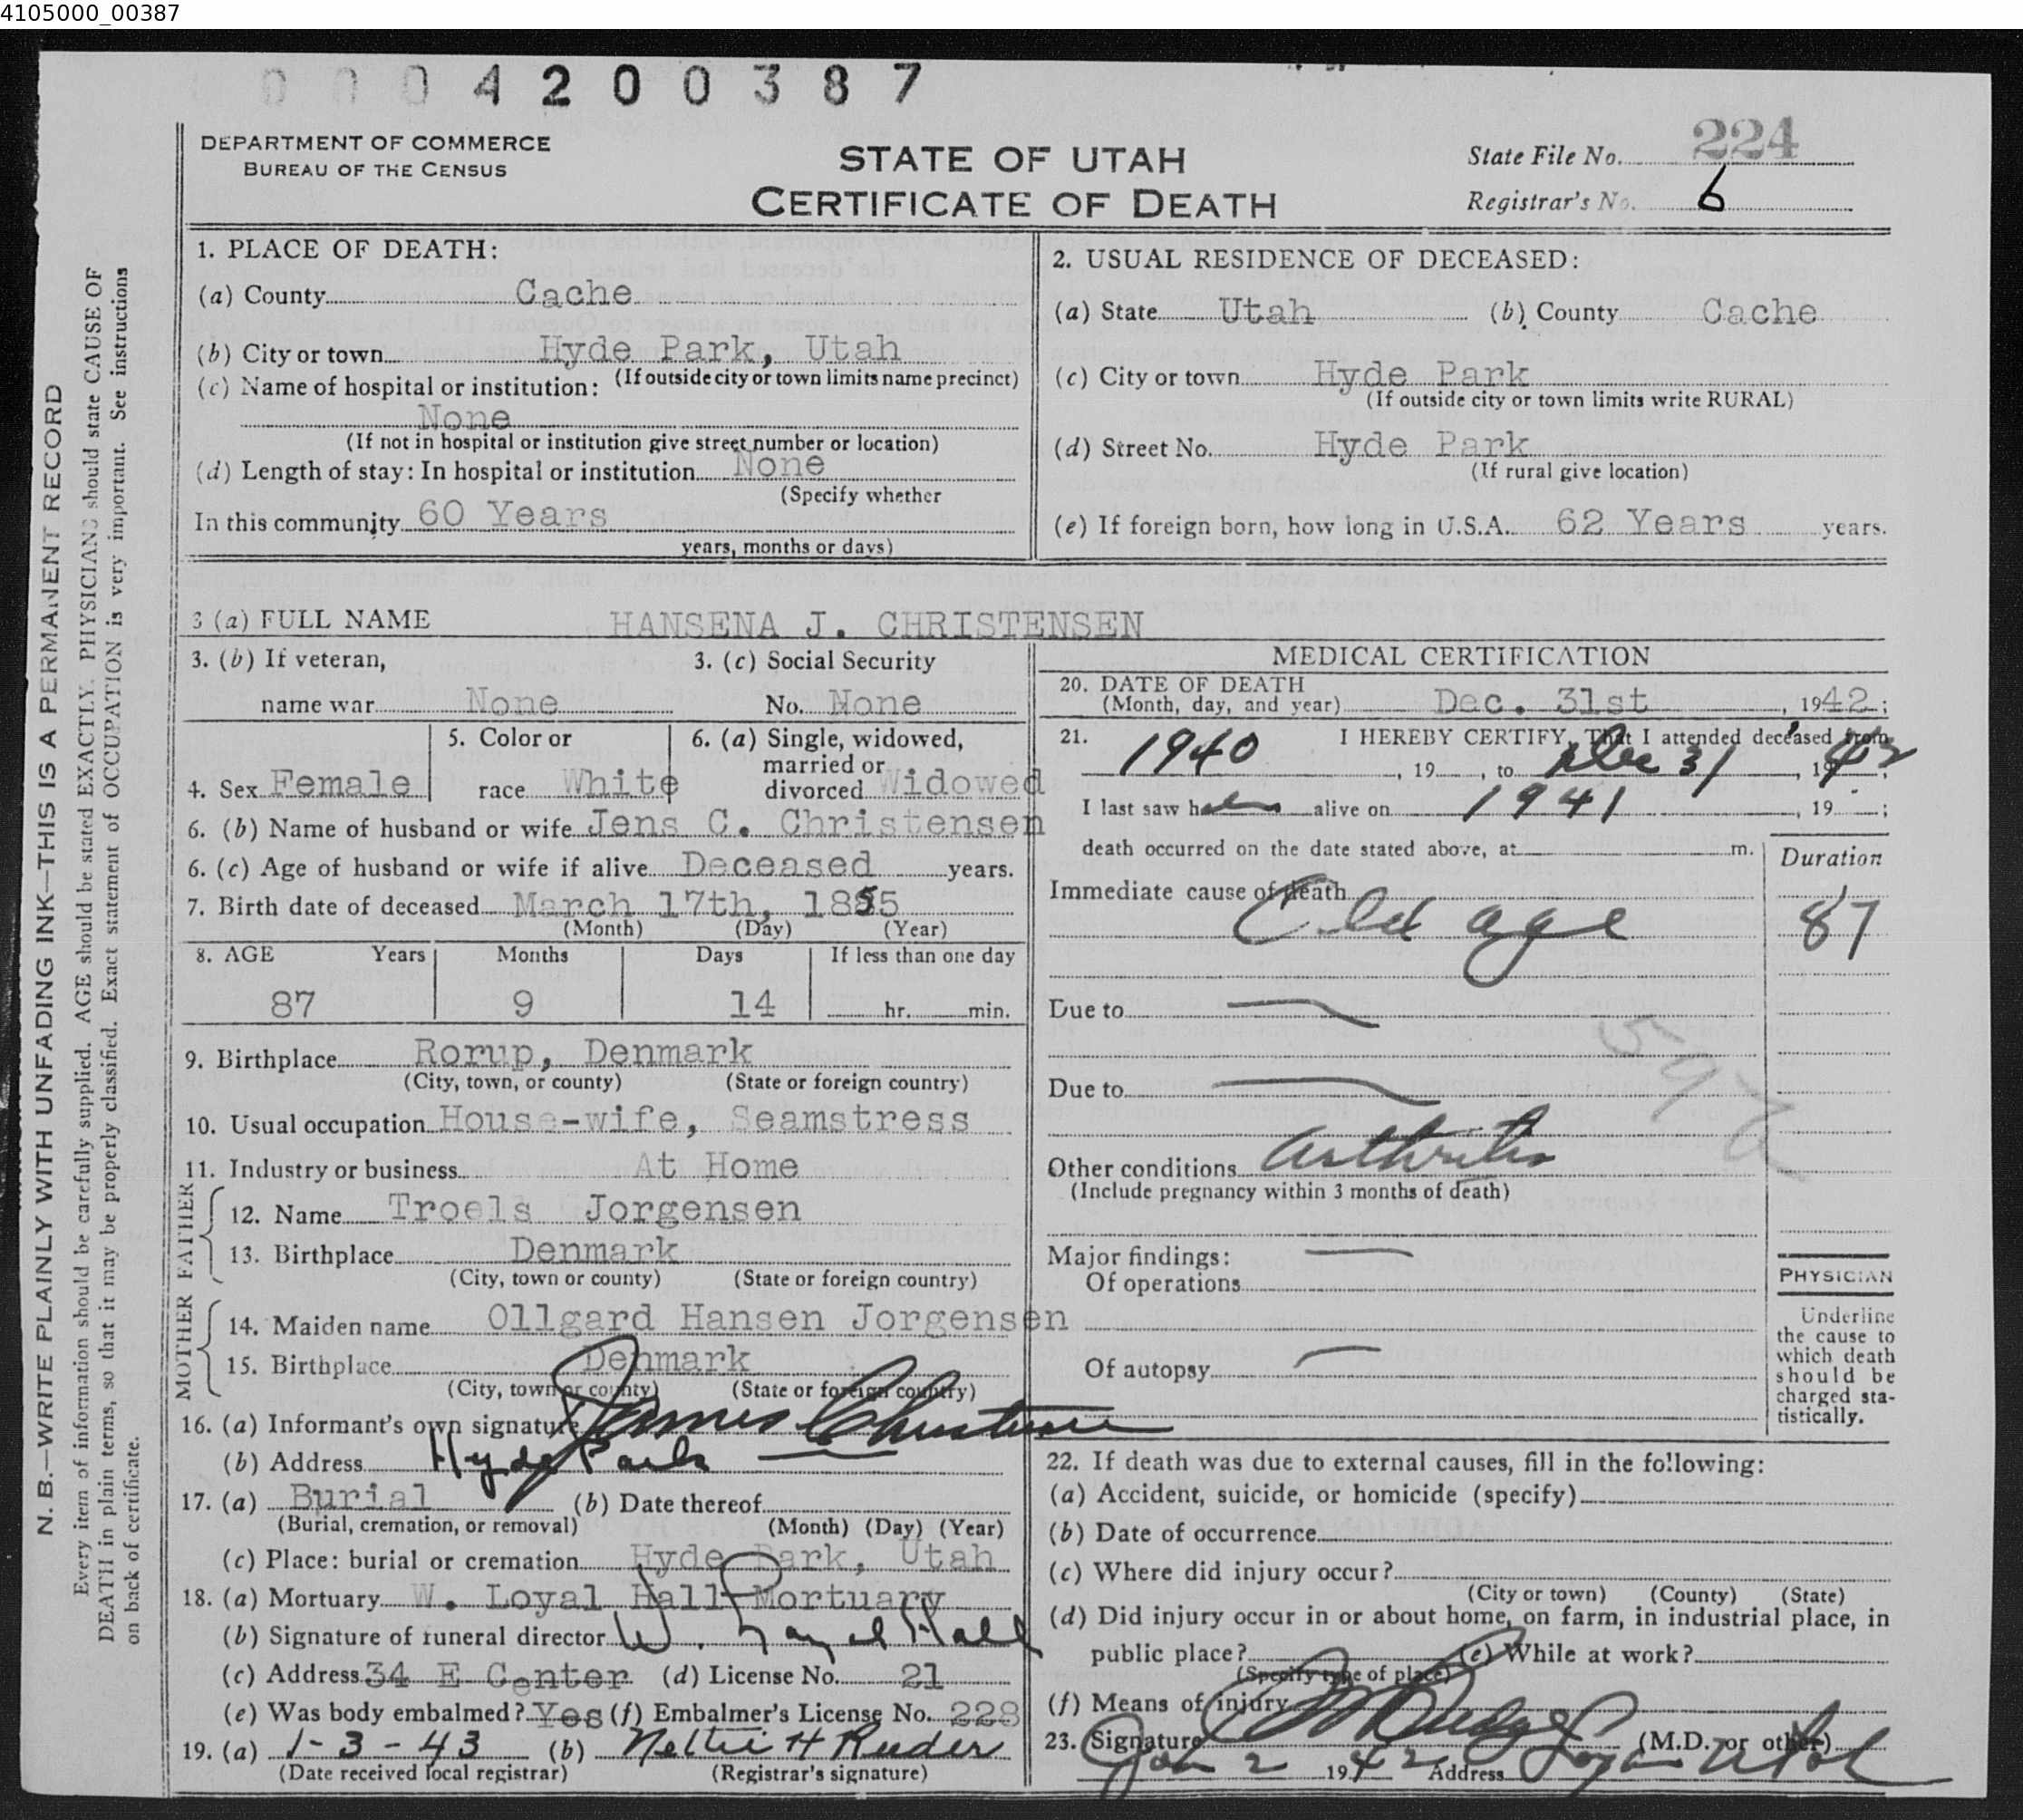 4105000_00387
0004200387
DEPARTMENT OF COMMERCE
BUREAU OF THE CENSUS
STATE OF UTAH
CERTIFICATE OF DEATH
State File No. 224
Registrar's No. 6
N. B.—WRITE PLAINLY WITH UNFADING INK—THIS IS A PERMANENT RECORD
Every item of information should be carefully supplied. AGE should be stated EXACTLY. PHYSICIANS should state CAUSE OF
DEATH in plain terms, so that it may be properly classified. Exact statement of OCCUPATION is very important. See instructions
on back of certificate.
1. PLACE OF DEATH:
(a) County Cache
(b) City or town Hyde Park, Utah
(If outside city or town limits name precinct)
(c) Name of hospital or institution:
None
(If not in hospital or institution give street number or location)
(d) Length of stay: In hospital or institution None
(Specify whether
In this community 60 Years
years, months or days)
2. USUAL RESIDENCE OF DECEASED:
(a) State Utah (b) County Cache
(c) City or town Hyde Park
(If outside city or town limits write RURAL)
(d) Street No. Hyde Park
(If rural give location)
(e) If foreign born, how long in U.S.A. 62 Years years.
3 (a) FULL NAME HANSENA J. CHRISTENSEN
3. (b) If veteran,
name war None
3. (c) Social Security
No. None
4. Sex Female
5. Color or
race White
6. (a) Single, widowed,
married or
divorced Widowed
6. (b) Name of husband or wife Jens C. Christensen
6. (c) Age of husband or wife if alive Deceased years.
7. Birth date of deceased March 17th, 1855
(Month) (Day) (Year)
8. AGE Years Months Days If less than one day
87 9 14 hr. min.
9. Birthplace Rorup, Denmark
(City, town, or county) (State or foreign country)
10. Usual occupation House-wife, Seamstress
11. Industry or business At Home
FATHER
12. Name Troels Jorgensen
13. Birthplace Denmark
(City, town or county) (State or foreign country)
MOTHER
14. Maiden name Ollgard Hansen Jorgensen
15. Birthplace Denmark
(City, town or county) (State or foreign country)
16. (a) Informant's own signature James Christensen
(b) Address Hyde Park
17. (a) Burial (b) Date thereof
(Burial, cremation, or removal) (Month) (Day) (Year)
(c) Place: burial or cremation Hyde Park, Utah
18. (a) Mortuary W. Loyal Hall Mortuary
(b) Signature of funeral director W. Loyal Hall
(c) Address 34 E Center (d) License No. 21
(e) Was body embalmed? Yes (f) Embalmer's License No. 228
19. (a) 1-3-43 (b) Nettie H Reeder
(Date received local registrar) (Registrar's signature)
MEDICAL CERTIFICATION
20. DATE OF DEATH
(Month, day, and year) Dec. 31st, 1942;
21. I HEREBY CERTIFY, That I attended deceased from
1940, 19, to Dec 31, 1942;
I last saw her alive on 1941, 19;
death occurred on the date stated above, at m.
Duration
Immediate cause of death
Old age 87
Due to
Due to
Other conditions Arthritis
(Include pregnancy within 3 months of death)
Major findings:
Of operations
Of autopsy
PHYSICIAN
Underline
the cause to
which death
should be
charged sta-
tistically.
22. If death was due to external causes, fill in the following:
(a) Accident, suicide, or homicide (specify)
(b) Date of occurrence
(c) Where did injury occur?
(City or town) (County) (State)
(d) Did injury occur in or about home, on farm, in industrial place, in
public place? (e) While at work?
(Specify type of place)
(f) Means of injury
23. Signature Budge (M.D. or other)
Jan 2 1942 Address Logan Utah